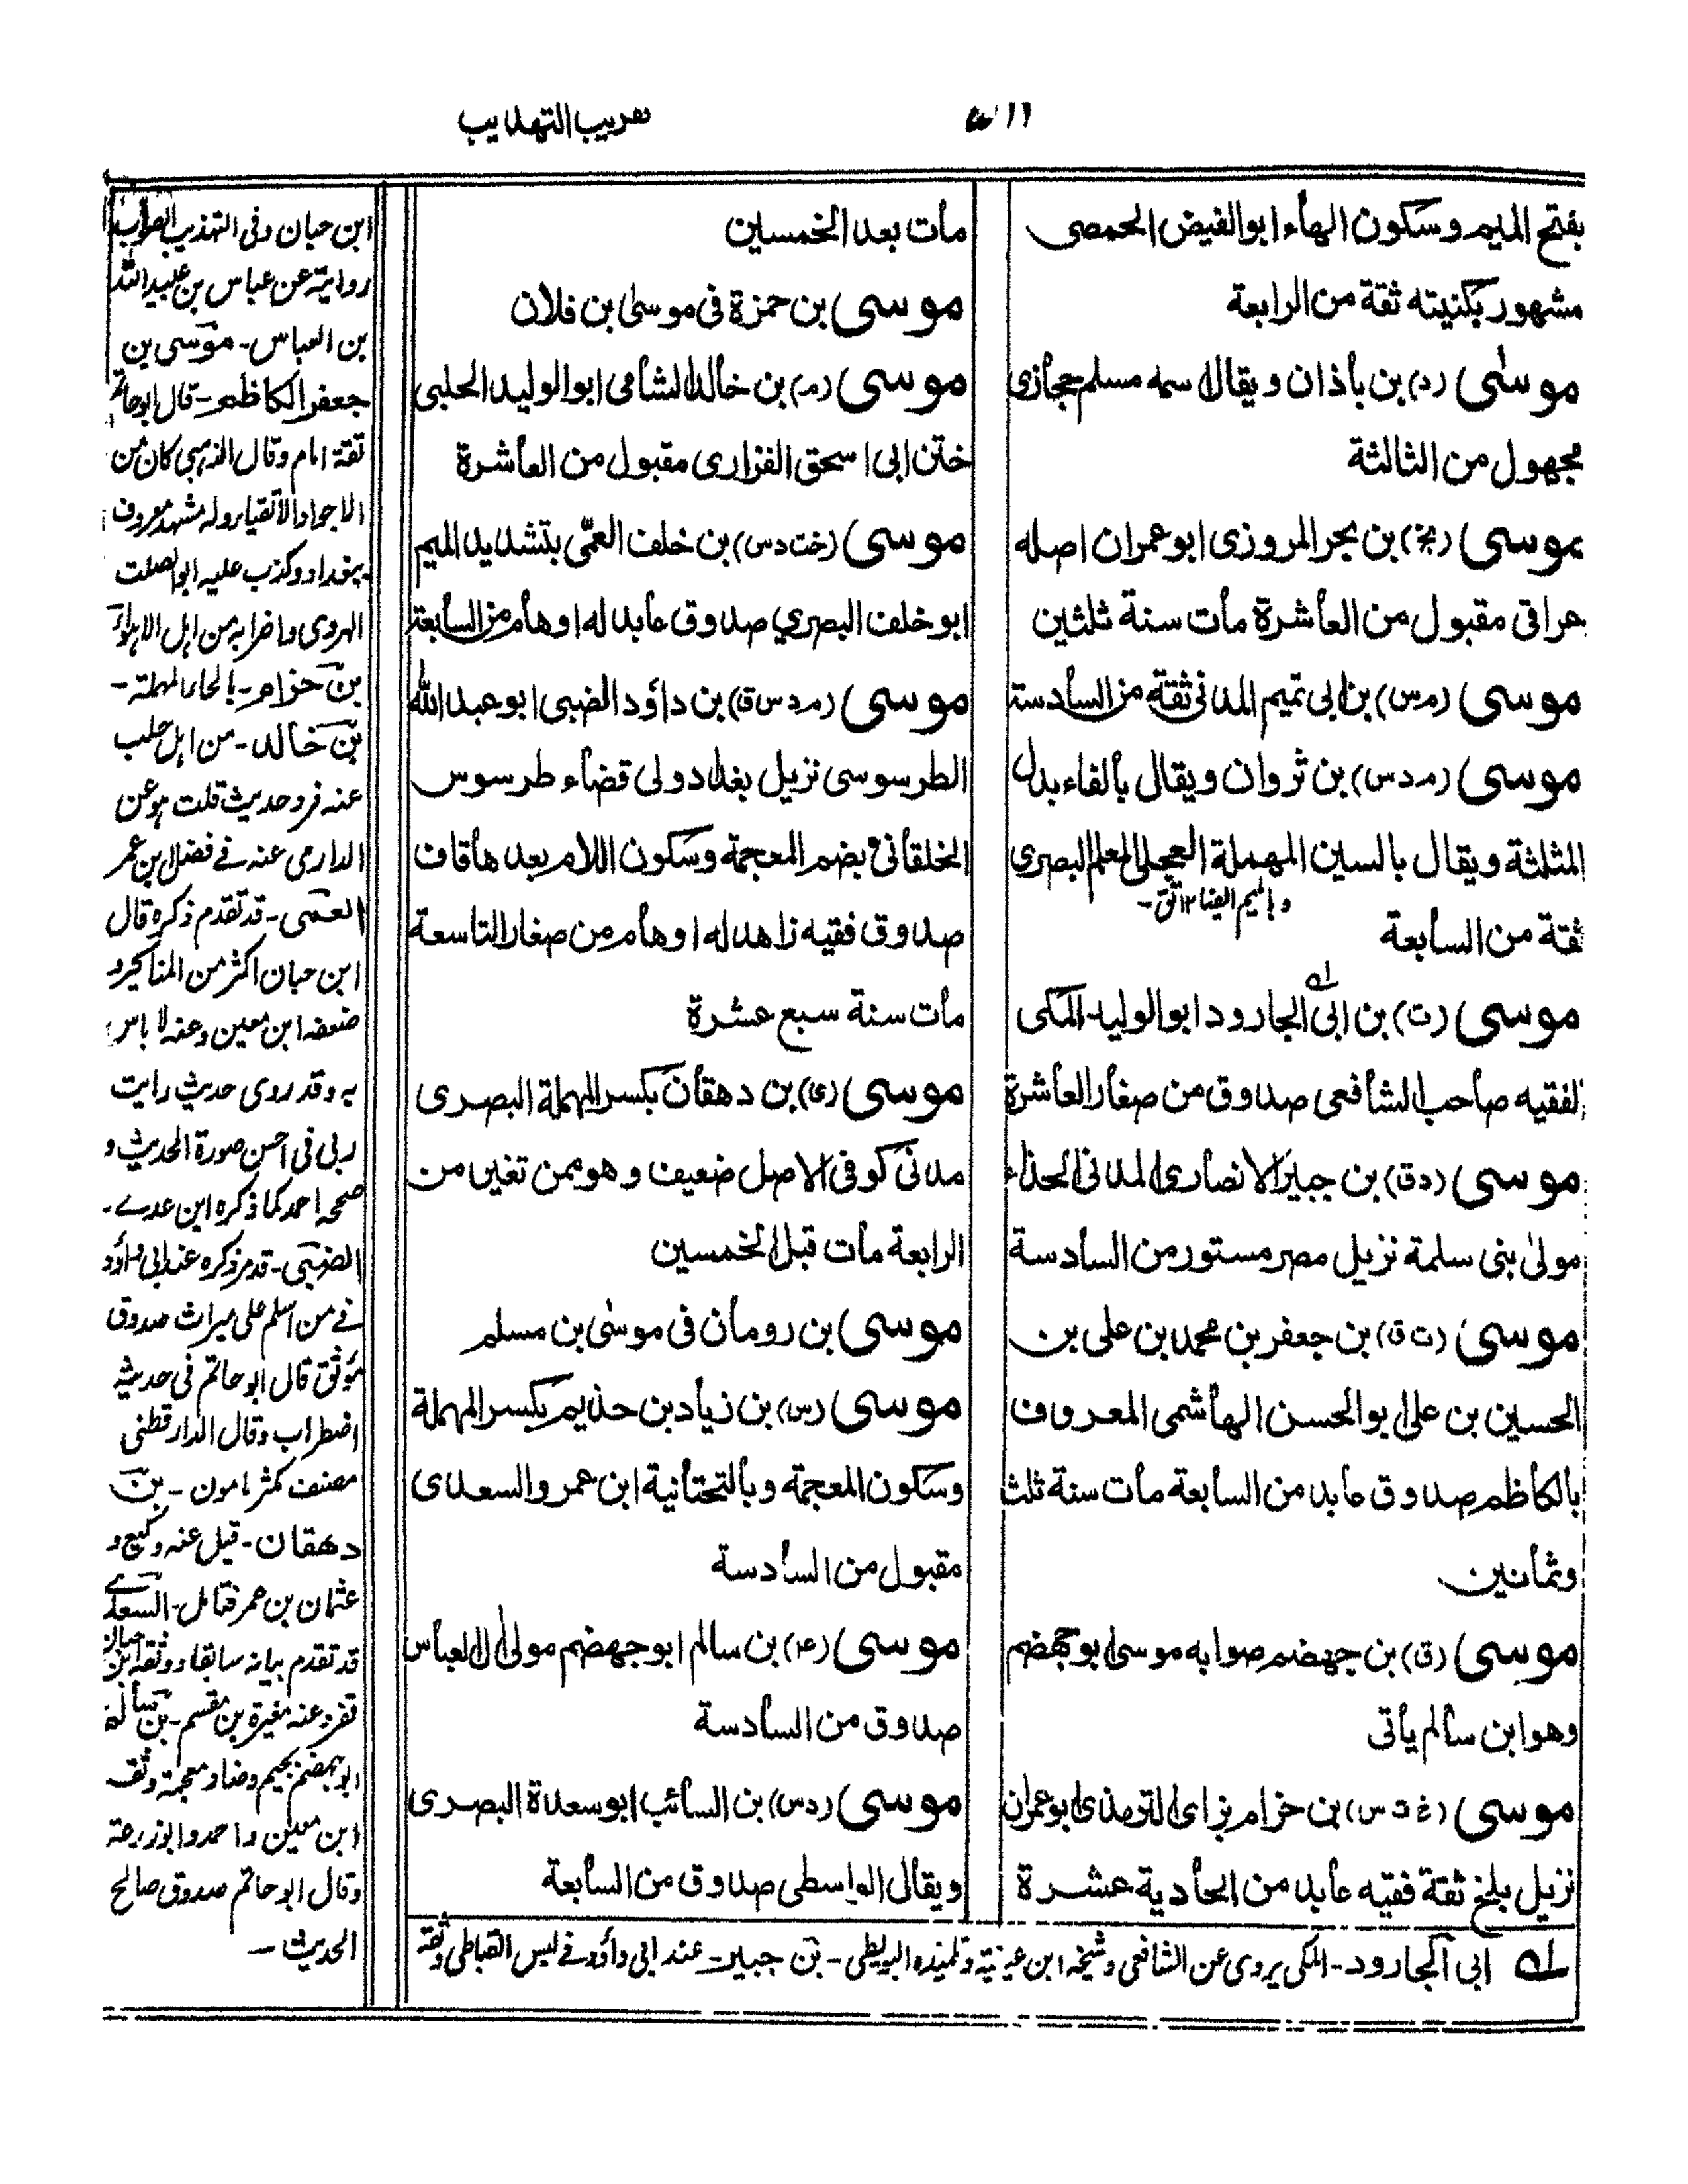 تقريب التهذيب
بفتح الميم وسكون الهاء ابوالفيض الحمصى
مشهور بكنيته ثقة من الرابعة
موسى (د) بن باذان ويقال اسمه مسلم حجازى
مجهول من الثالثة
موسى (بخ) بن بحر المروزى ابوعمران اصله
عراقى مقبول من العاشرة مات سنة ثلثين
موسى (م س) بن ابى تميم المدنى ثقة من السادسة
موسى (م د س) بن ثروان ويقال بالفاء بدل
المثلثة ويقال بالسين المهملة العجلى المعلم البصرى
وبالميم ايضا ١٢
ثقة من السابعة
موسى (ت) بن ابى الجارود ابوالوليد المكى
الفقيه صاحب الشافعى صدوق من صغار العاشرة
موسى (د ق) بن جبير الانصارى المدنى الحذاء
مولى بنى سلمة نزيل مصر مستور من السادسة
موسى (ت ق) بن جعفر بن محمد بن على بن
الحسين بن على ابوالحسن الهاشمى المعروف
بالكاظم صدوق عابد من السابعة مات سنة ثلث
وثمانين
موسى (ق) بن جهضم صوابه موسى ابوجهضم
وهو ابن سالم يأتى
موسى (خ ت س) بن حزام بزاى الترمذى ابوعمران
نزيل بلخ ثقة فقيه عابد من الحادية عشرة
مات بعد الخمسين
موسى بن حمزة فى موسى بن فلان
موسى (م) بن خالد الشامى ابوالوليد الحلبى
ختن ابى اسحق الفزارى مقبول من العاشرة
موسى (خت د س) بن خلف العمّى بتشديد الميم
ابوخلف البصري صدوق عابد له اوهام من السابعة
موسى (م د س ق) بن داؤد الضبى ابوعبدالله
الطرسوسى نزيل بغداد ولى قضاء طرسوس
الخلقانى بضم المعجمة وسكون اللام بعدها قاف
صدوق فقيه زاهد له اوهام من صغار التاسعة
مات سنة سبع عشرة
موسى (ى) بن دهقان بكسر المهملة البصرى
مدنى كوفى الاصل ضعيف وهو ممن تغير من
الرابعة مات قبل الخمسين
موسى بن رومان فى موسى بن مسلم
موسى (س) بن زياد بن حذيم بكسر المهملة
وسكون المعجمة وبالتحتانية ابن عمرو السعدى
مقبول من السادسة
موسى (عـ) بن سالم ابوجهضم مولى ال العباس
صدوق من السادسة
موسى (د س) بن السائب ابوسعدة البصرى
ويقال الواسطى صدوق من السابعة
ابن حبان وفى التهذيب الصواب
روايته عن عباس بن عبيدالله
بن العباس - موسى بن
جعفر الكاظم - قال ابوحاتم
ثقة امام وقال الذهبى كان من
الاجواد الاتقياء وله مشهد معروف
ببغداد وكذب عليه ابوالصلت
الهروى واضرابه من اهل الاهواء
بن حزام - بالحاء المهملة -
بن خالد - من اهل حلب
عنه فرد حديث قلت هو عن
الدارمى عنه فى فضل ابن عمر
العمى - قد تقدم ذكره قال
ابن حبان اكثر من المناكير و
ضعفه ابن معين وعنه لا باس
به وقد روى حديث رايت
ربى فى احسن صورة الحديث و
صححه احمد كما ذكره ابن عدے -
الضبى - قد مر ذكره عند ابى داؤد
فى من اسلم على ميراث صدوق
موثق قال ابوحاتم فى حديثه
اضطراب وقال الدارقطنى
مصنف مكثر مامون - بن
دهقان - قيل عنه وكيع و
عثمان بن عمر فتامل - السعدے
قد تقدم بيانه سابقا ووثقه ابن حبان
تفرد عنه مغيرة بن مقسم - بن سالم
ابوجهضم بجيم وضاد معجمة وثقه
ابن معين واحمد وابوزرعة
وقال ابوحاتم صدوق صالح
الحديث -
له ابى الجارود - المكى يروى عن الشافعى وشيخه ابن عيينة وتلميذه البويطى - بن جبير - عند ابى داؤد فى لبس القباطى وثقه